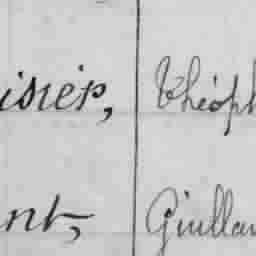 isièr, Théoph
nt, Guillau